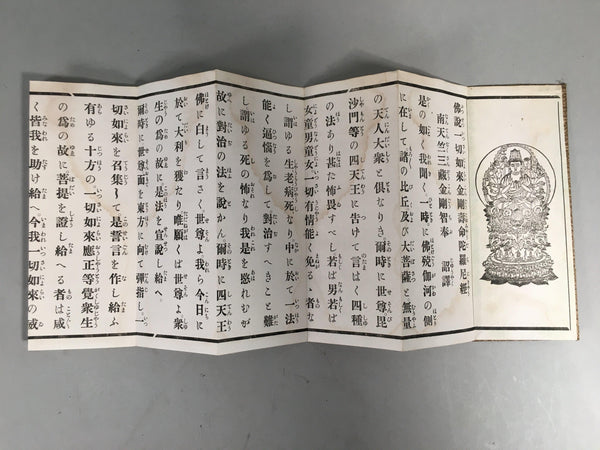 佛說一切如來金剛壽命陀羅尼經
南天竺三藏金剛智奉 詔譯
是の如く我聞く一時に佛殑伽河の側
に在して諸の比丘及び大菩薩と無量
の天人大衆と俱なりき爾時に世尊毘
沙門等の四天王に告けて言はく四種
の法あり甚た怖畏すべし若は男若は
女童男童女一切有情能く免るゝ者な
し謂ゆる生老病死なり中に於て一法
能く逼惱を爲して對治すへきこと難
し謂ゆる死の怖なり我れ是を愍れむが
故に對治の法を說かん爾時に四天王
佛に白して言さく世尊よ我ら今日に
於て大利を獲たり唯願くは世尊よ衆
生の爲の故に是法を宣說し給へ
爾時に世尊面を東方に向て彈指し一
切如來を召集して是誓言を作し給ふ
有ゆる十方の一切如來應正等覺衆生
の爲の故に菩提を證し給へる者は咸
く皆我を助け給へ今我一切如來の威